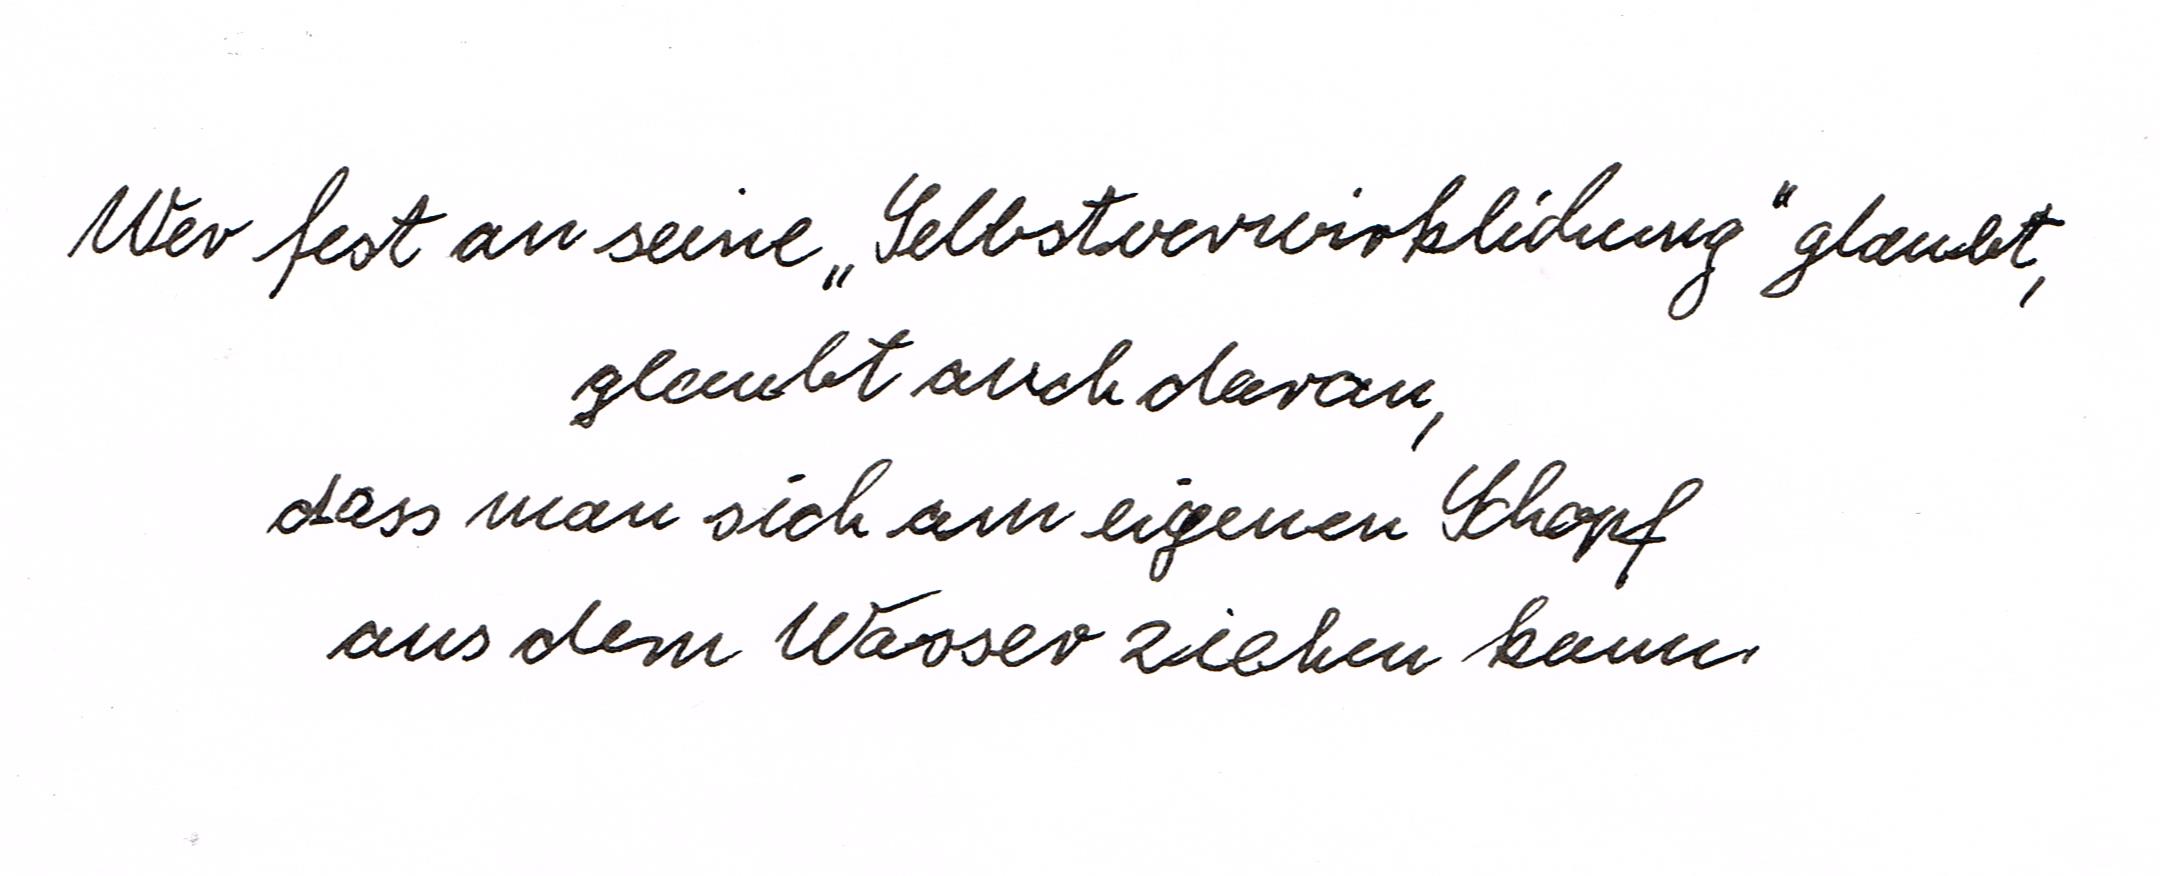 Wer fest an seine „Selbstverwirklichung" glaubt,
glaubt auch daran,
dass man sich am eigenen Schopf
aus dem Wasser ziehen kann.